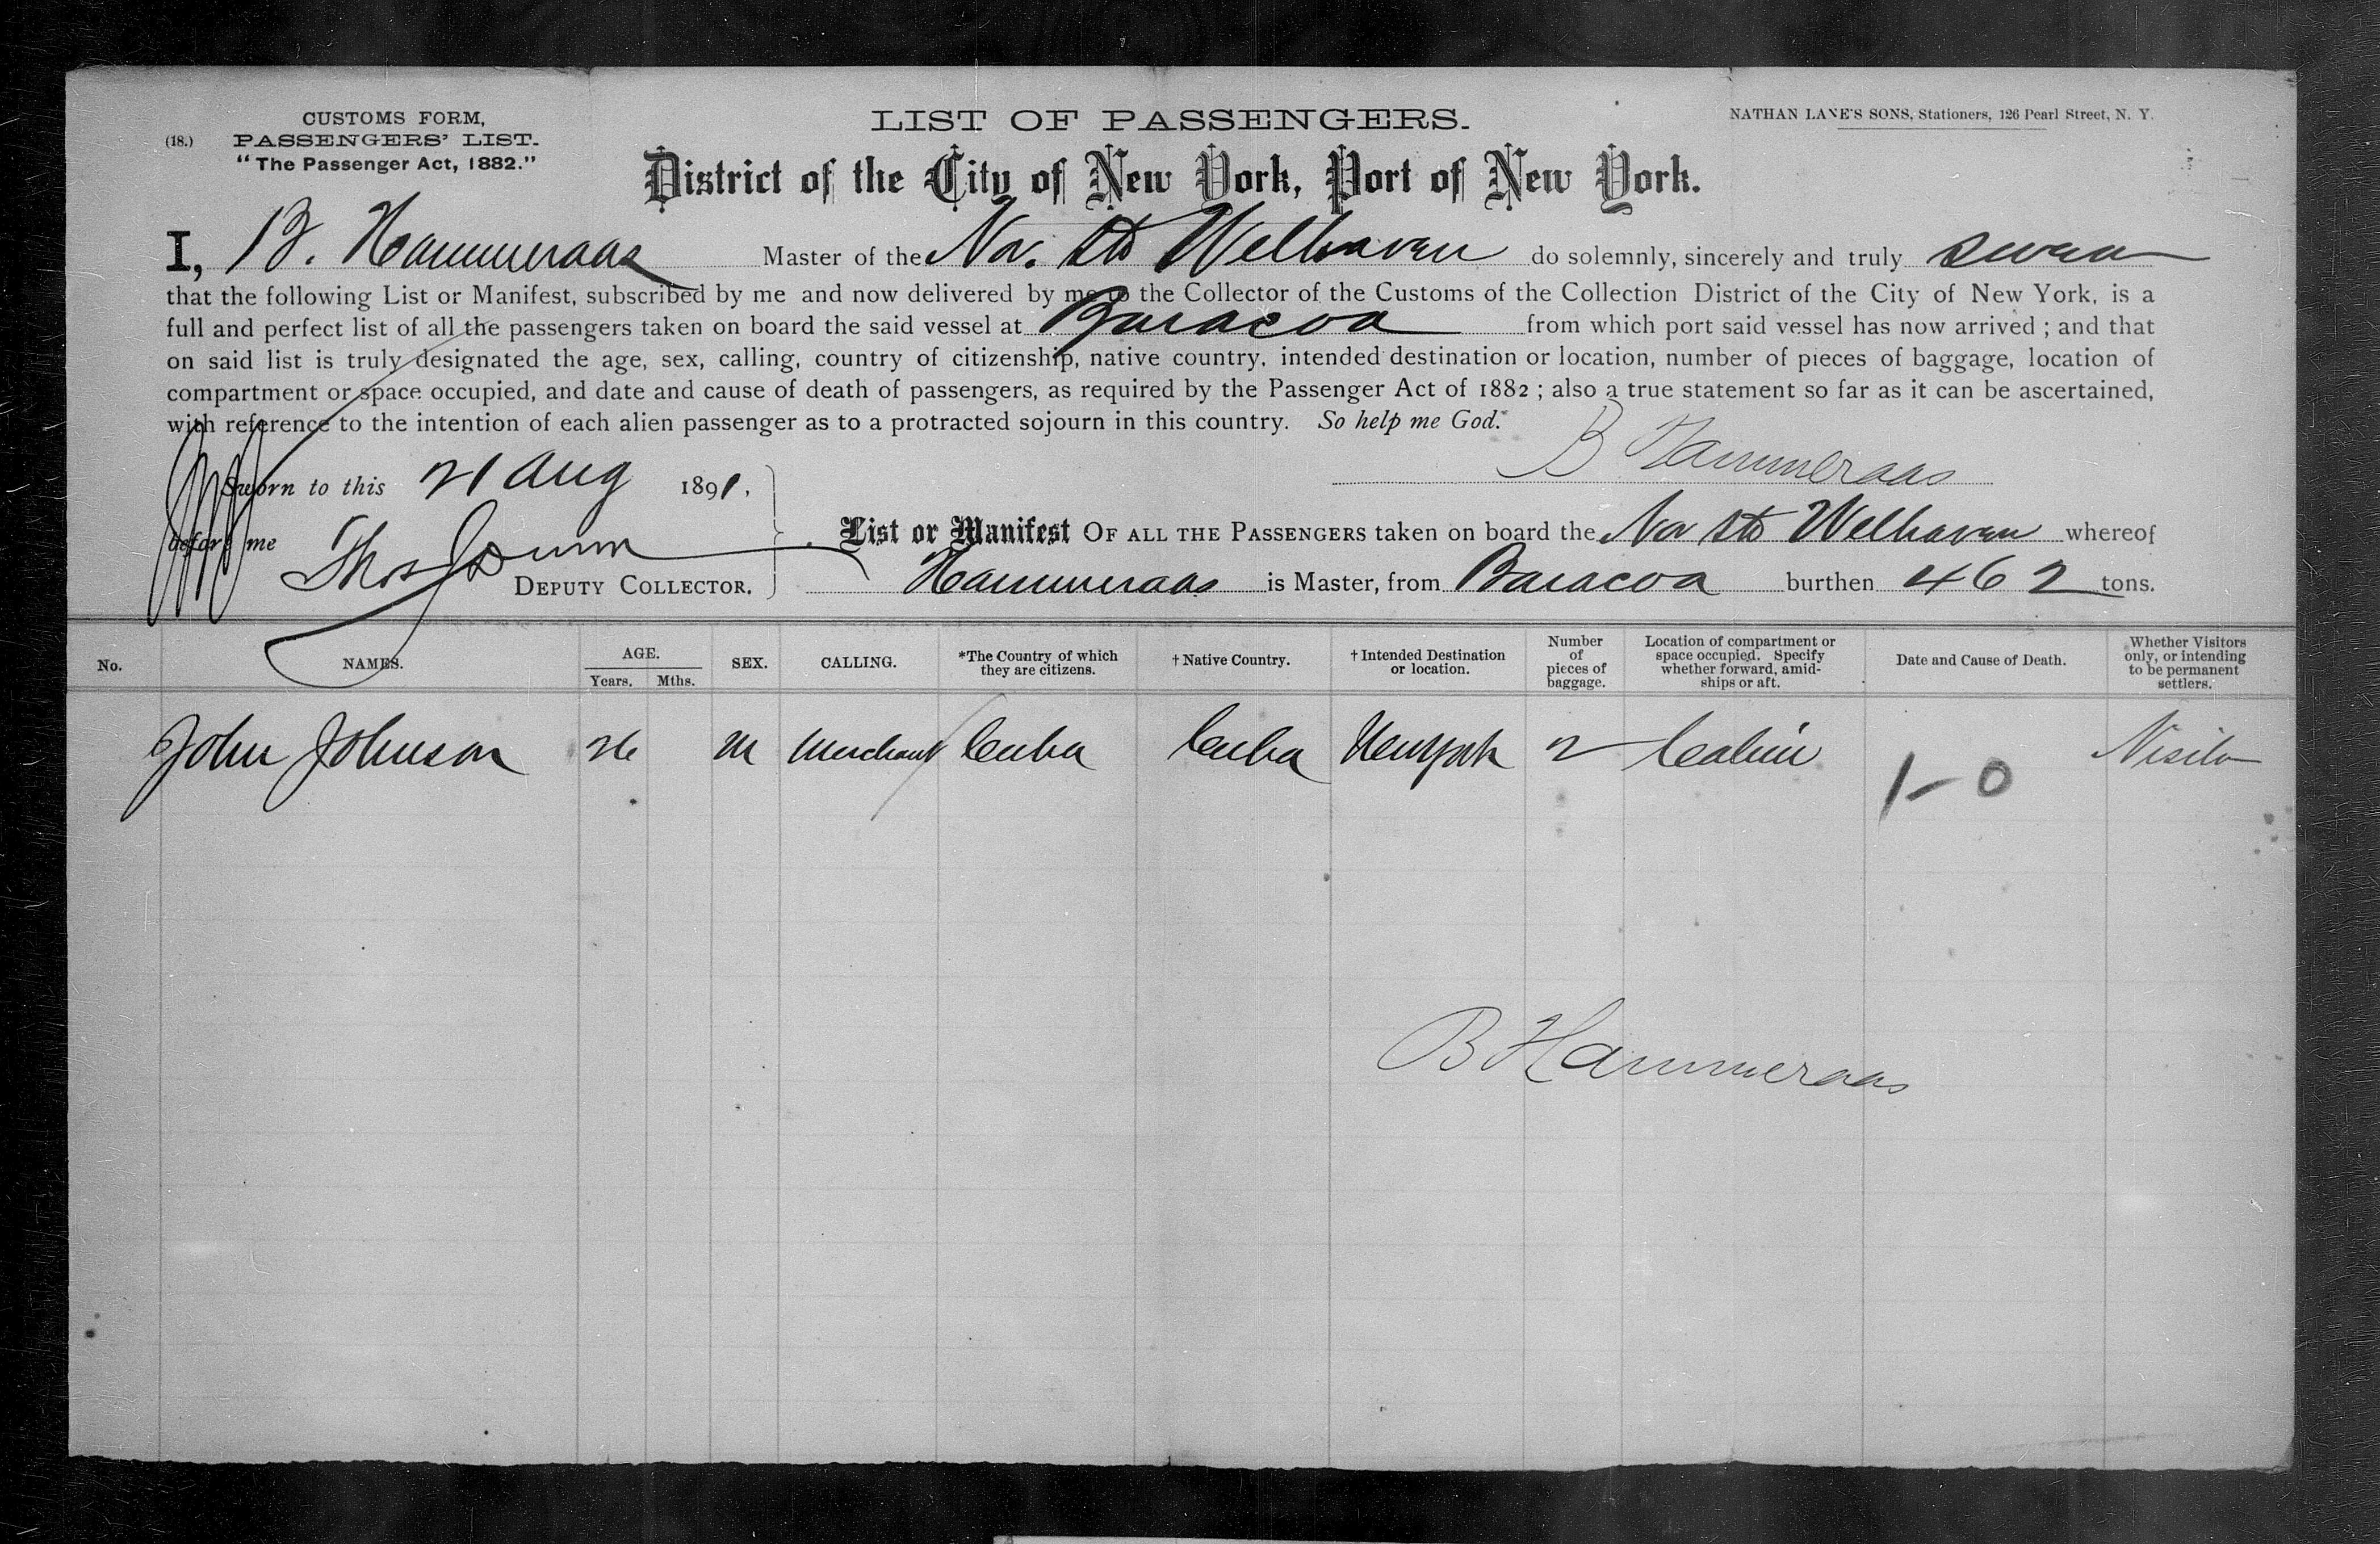 (18.) CUSTOMS FORM,
PASSENGERS' LIST.
"The Passenger Act, 1882."
LIST OF PASSENGERS.
NATHAN LANE'S SONS, Stationers, 126 Pearl Street, N. Y.
District of the City of New York, Port of New York.
I, B. Hammeraas Master of the Nor. Str Welhaven do solemnly, sincerely and truly swear
that the following List or Manifest, subscribed by me and now delivered by me to the Collector of the Customs of the Collection District of the City of New York, is a
full and perfect list of all the passengers taken on board the said vessel at Baracoa from which port said vessel has now arrived ; and that
on said list is truly designated the age, sex, calling, country of citizenship, native country, intended destination or location, number of pieces of baggage, location of
compartment or space occupied, and date and cause of death of passengers, as required by the Passenger Act of 1882 ; also a true statement so far as it can be ascertained,
with reference to the intention of each alien passenger as to a protracted sojourn in this country. So help me God.
B Hammeraas
Sworn to this 21 Aug 1891,
before me Thos Dunn
DEPUTY COLLECTOR.
List or Manifest OF ALL THE PASSENGERS taken on board the Nor Str Welhaven whereof
Hammeraas is Master, from Baracoa burthen 462 tons.
No. NAMES. AGE. Years. Mths. SEX. CALLING. *The Country of which they are citizens. † Native Country. † Intended Destination or location. Number of pieces of baggage. Location of compartment or space occupied. Specify whether forward, amidships or aft. Date and Cause of Death. Whether Visitors only, or intending to be permanent settlers.
John Johnson 26 M Merchant Cuba Cuba New York 2 Cabin Visitor
1-0
B Hammeraas